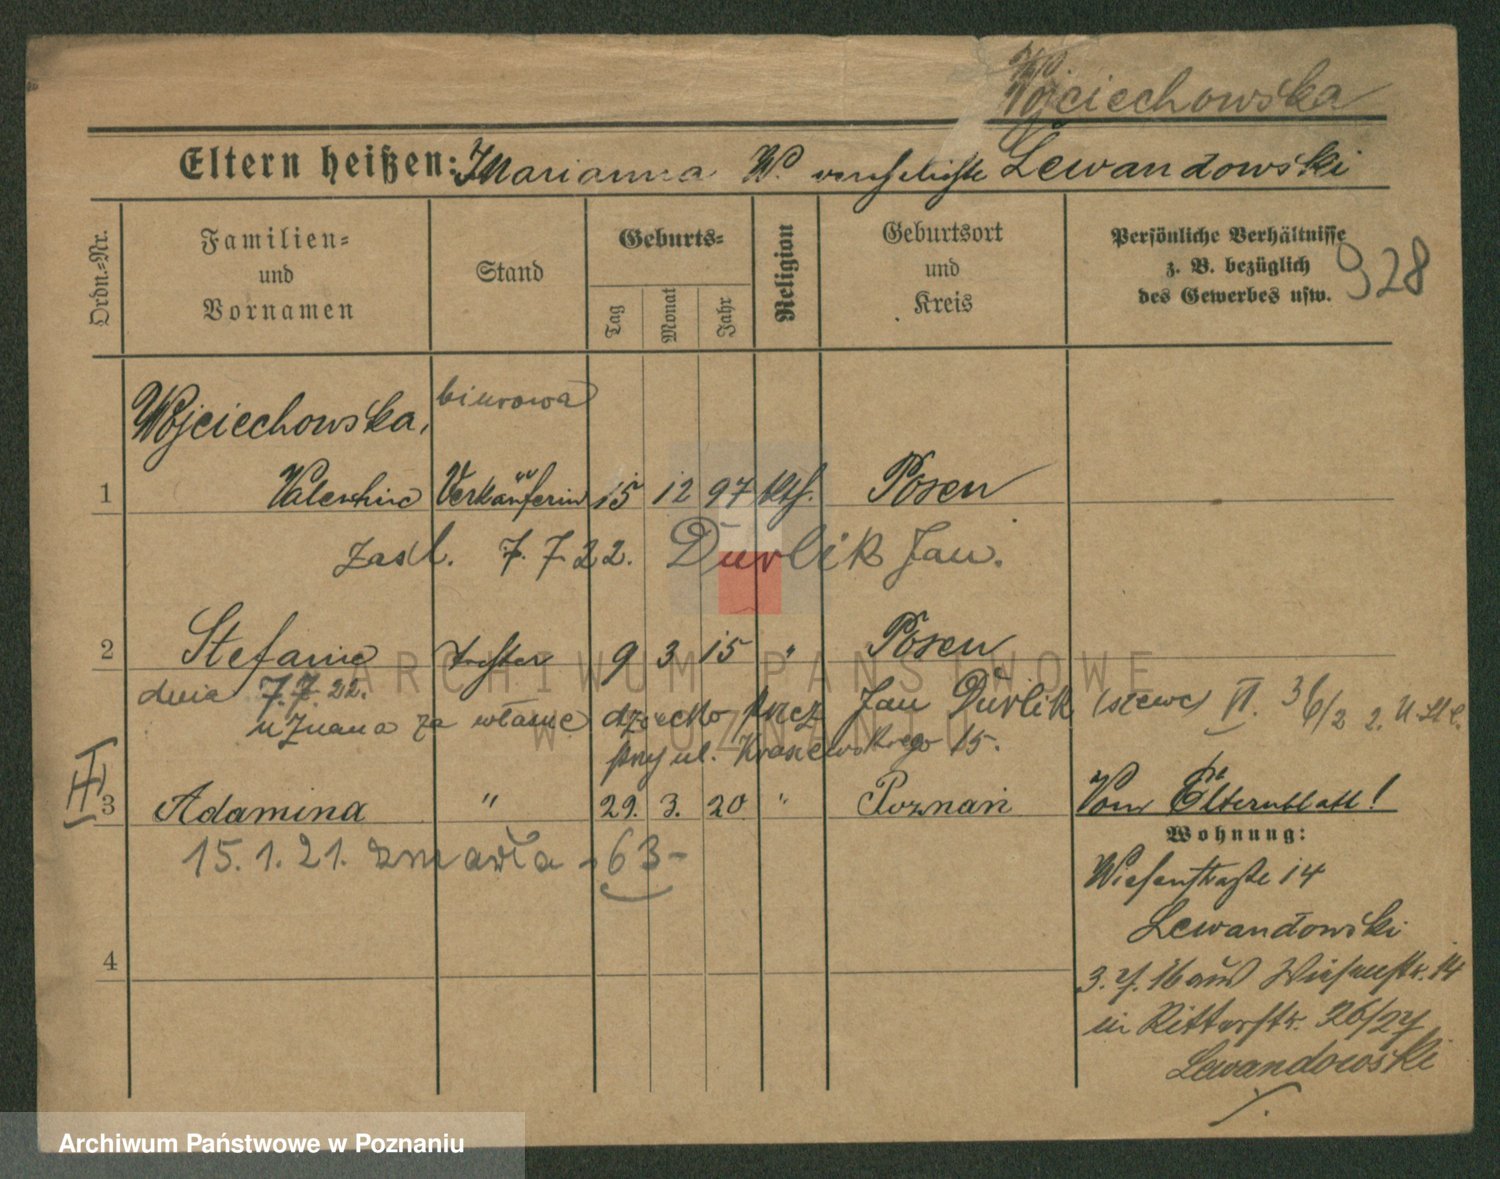 Wojciechowska
Eltern heißen: Marianna W. verehelichte Lewandowski
Ordn.-Nr.
Familien-
und
Vornamen
Stand
Geburts-
Tag
Monat
Jahr
Religion
Geburtsort
und
Kreis
Persönliche Verhältnisse
z. B. bezüglich
des Gewerbes usw.
928
Wojciechowska, biurowa
1 Valentine Verkäuferin 15 12 97 kth. Posen
zasl. 7. 7 22. Durlik Jan.
2 Stefanie Tochter 9 3 15 " Posen
dnia 7.7.22.
uznana za własne dziecko przez Jan Durlik (szewc) VI. 36/22. U.St.C.
przy ul. Kraszewskiego 15.
III
3 Adamina " 29. 3. 20 " Poznań Vom Elternblatt!
15. 1. 21. zmarła - 63 -
Wohnung:
Wiesenstraße 14
Lewandowski
4
3. 7. 16 aus Wiesenstr. 14
in Ritterstr. 26/27
Lewandowski
ARCHIWUM PAŃSTWOWE
W POZNANIU
Archiwum Państwowe w Poznaniu